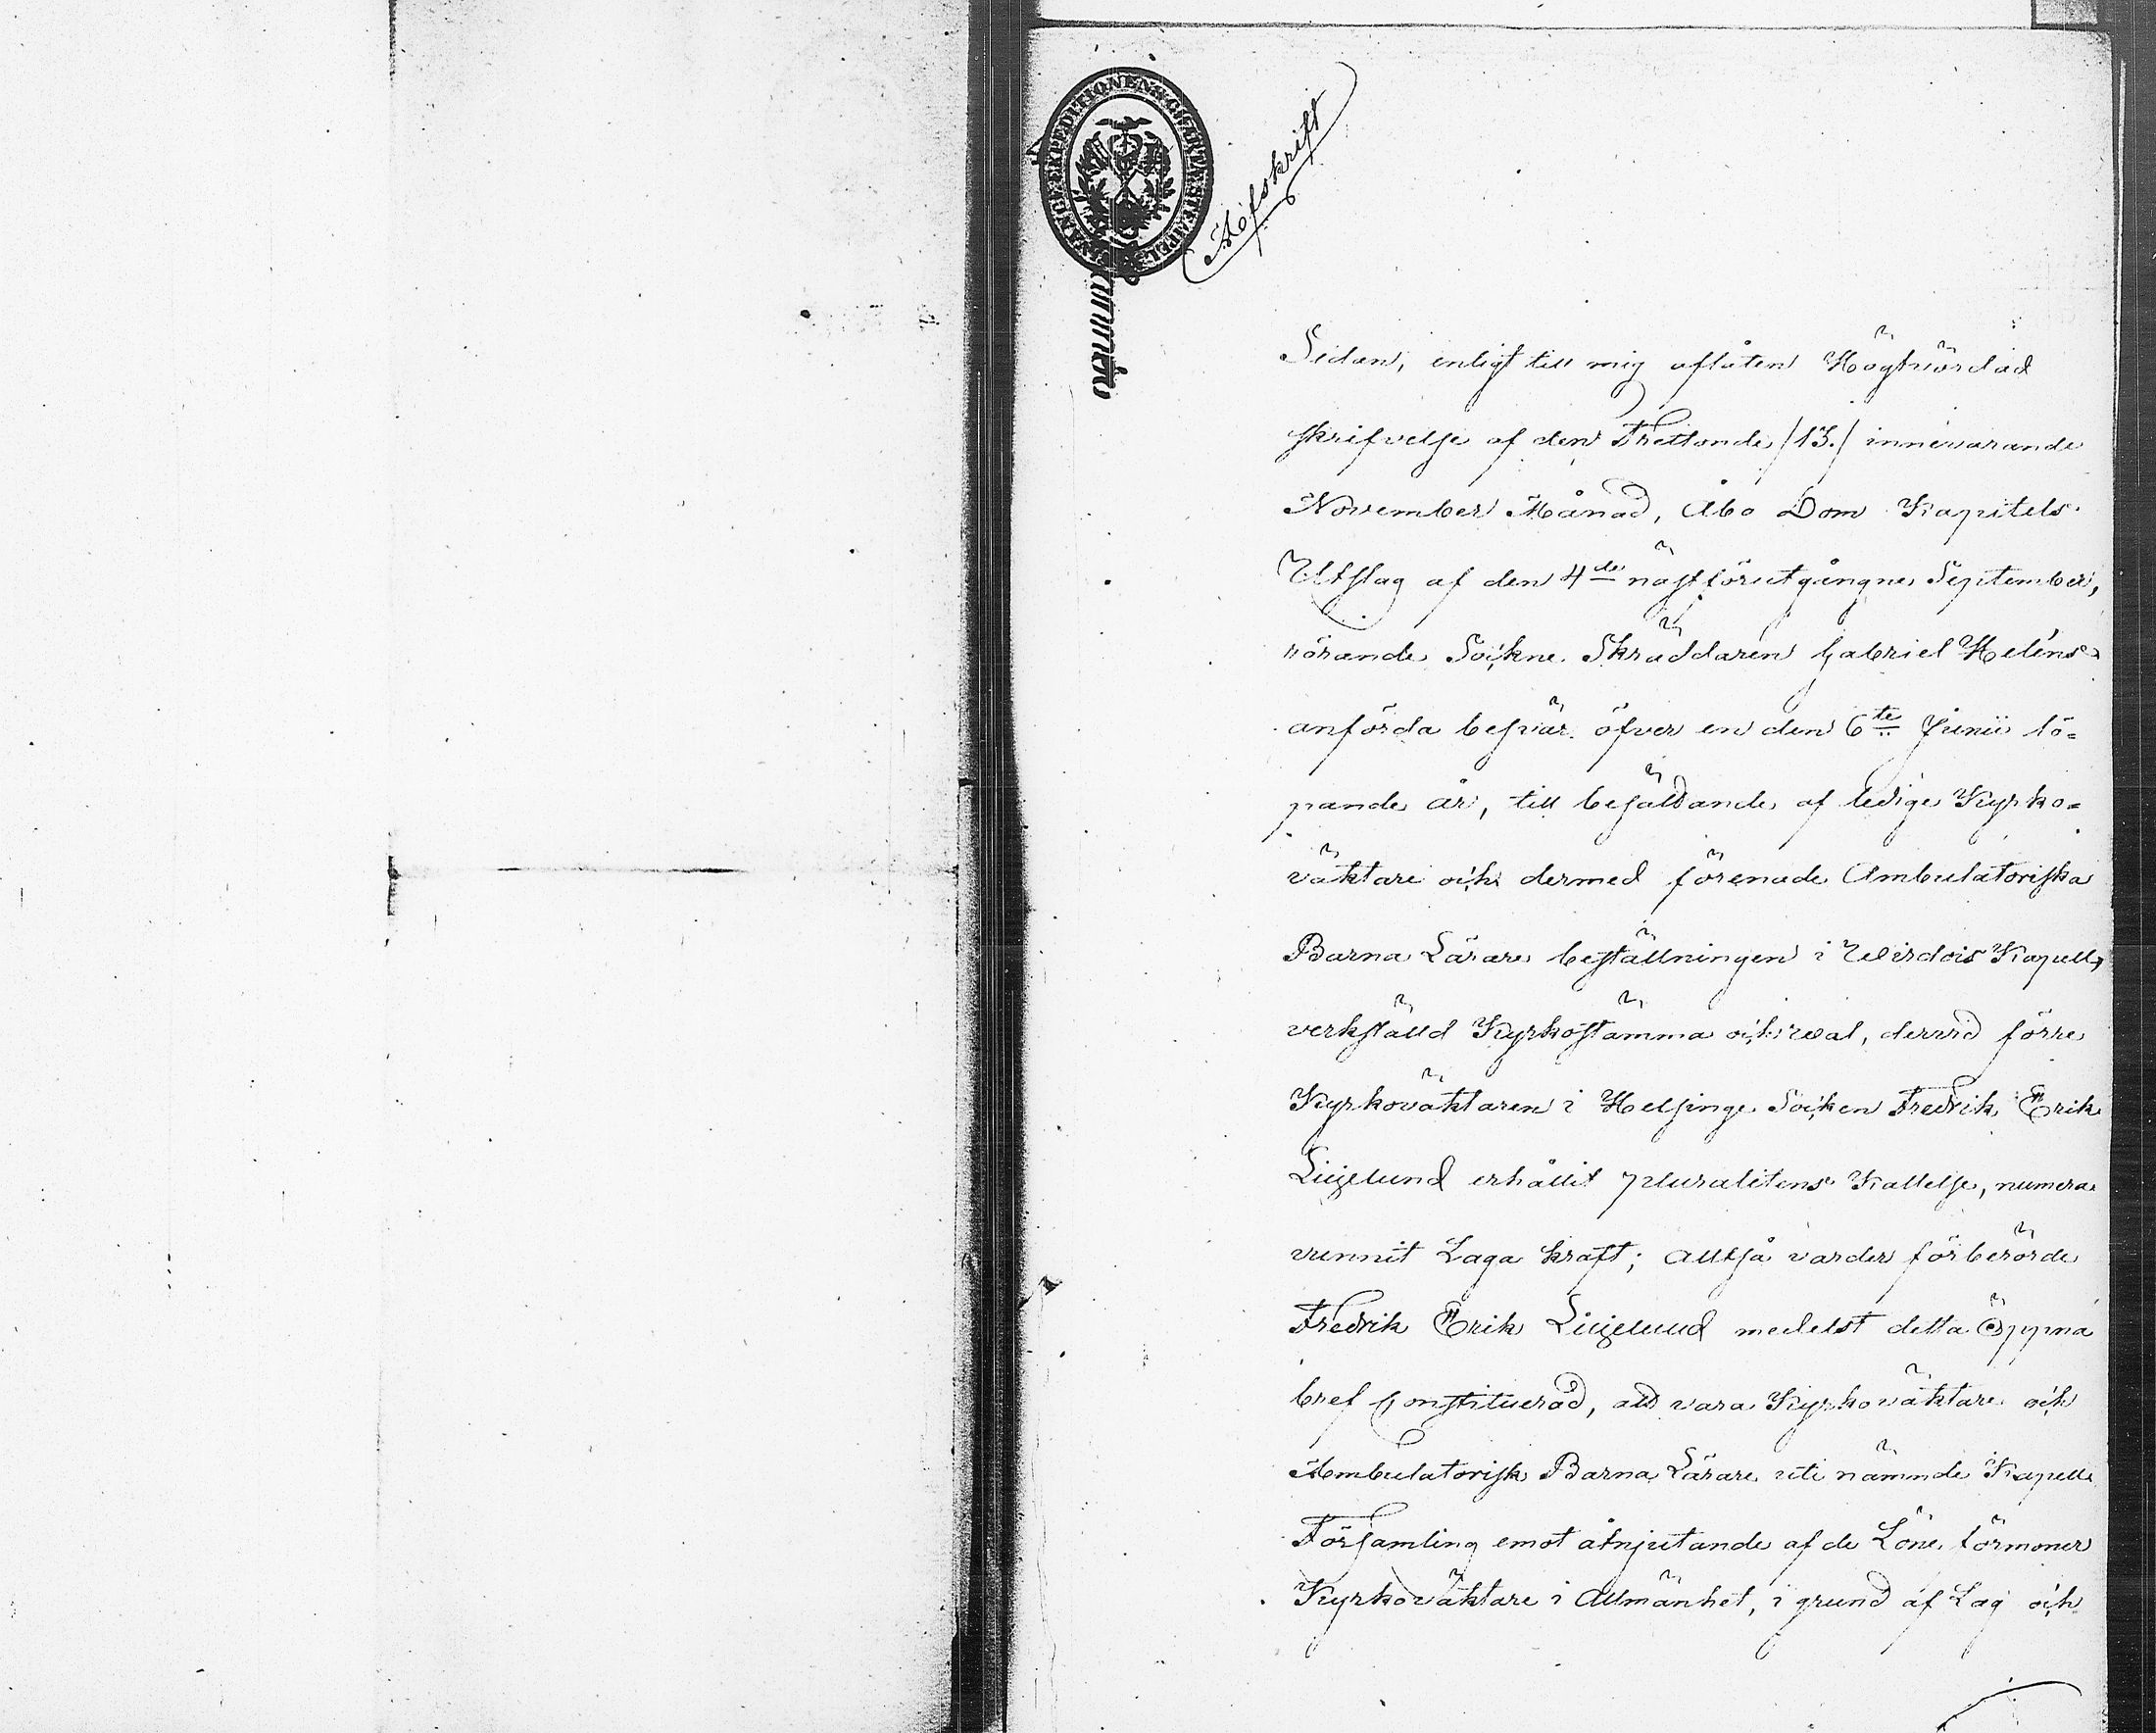 Afskrift
Sidan, enligt till mig aflåten Högtvördad
skrifvelse af den Trettonde /13./ innevarande
November Månad, Åbo Dom Kapitels
Utslag af den 4de nästförutgångne September,
rörande Sockne Skräddaren Gabriel Heléns
anförda besvär öfver en den 6te Junii lö=
pande år, till besättande af ledige Kyrko=
väktare och dermed förenade Ambulatoriska
Barna Lärare beställningen i Wirdois Kapell,
verkställd Kyrkostämma och val, dervid förre
Kyrkoväktaren i Helsinge Socken Fredrik Erik
Liljelund erhållit pluralitens Kallelse, numera
vunnit Laga kraft; Alltså varder förberörde
Fredrik Erik Liljelund medelst detta Öppna
bref Constituerad, att vara Kyrkoväktare och
Ambulatorisk Barna Lärare uti nämnde Kapell
Församling emot åtnjutande af de Löne förmoner
Kyrkoväktare i Allmänhet, i grund af Lag och